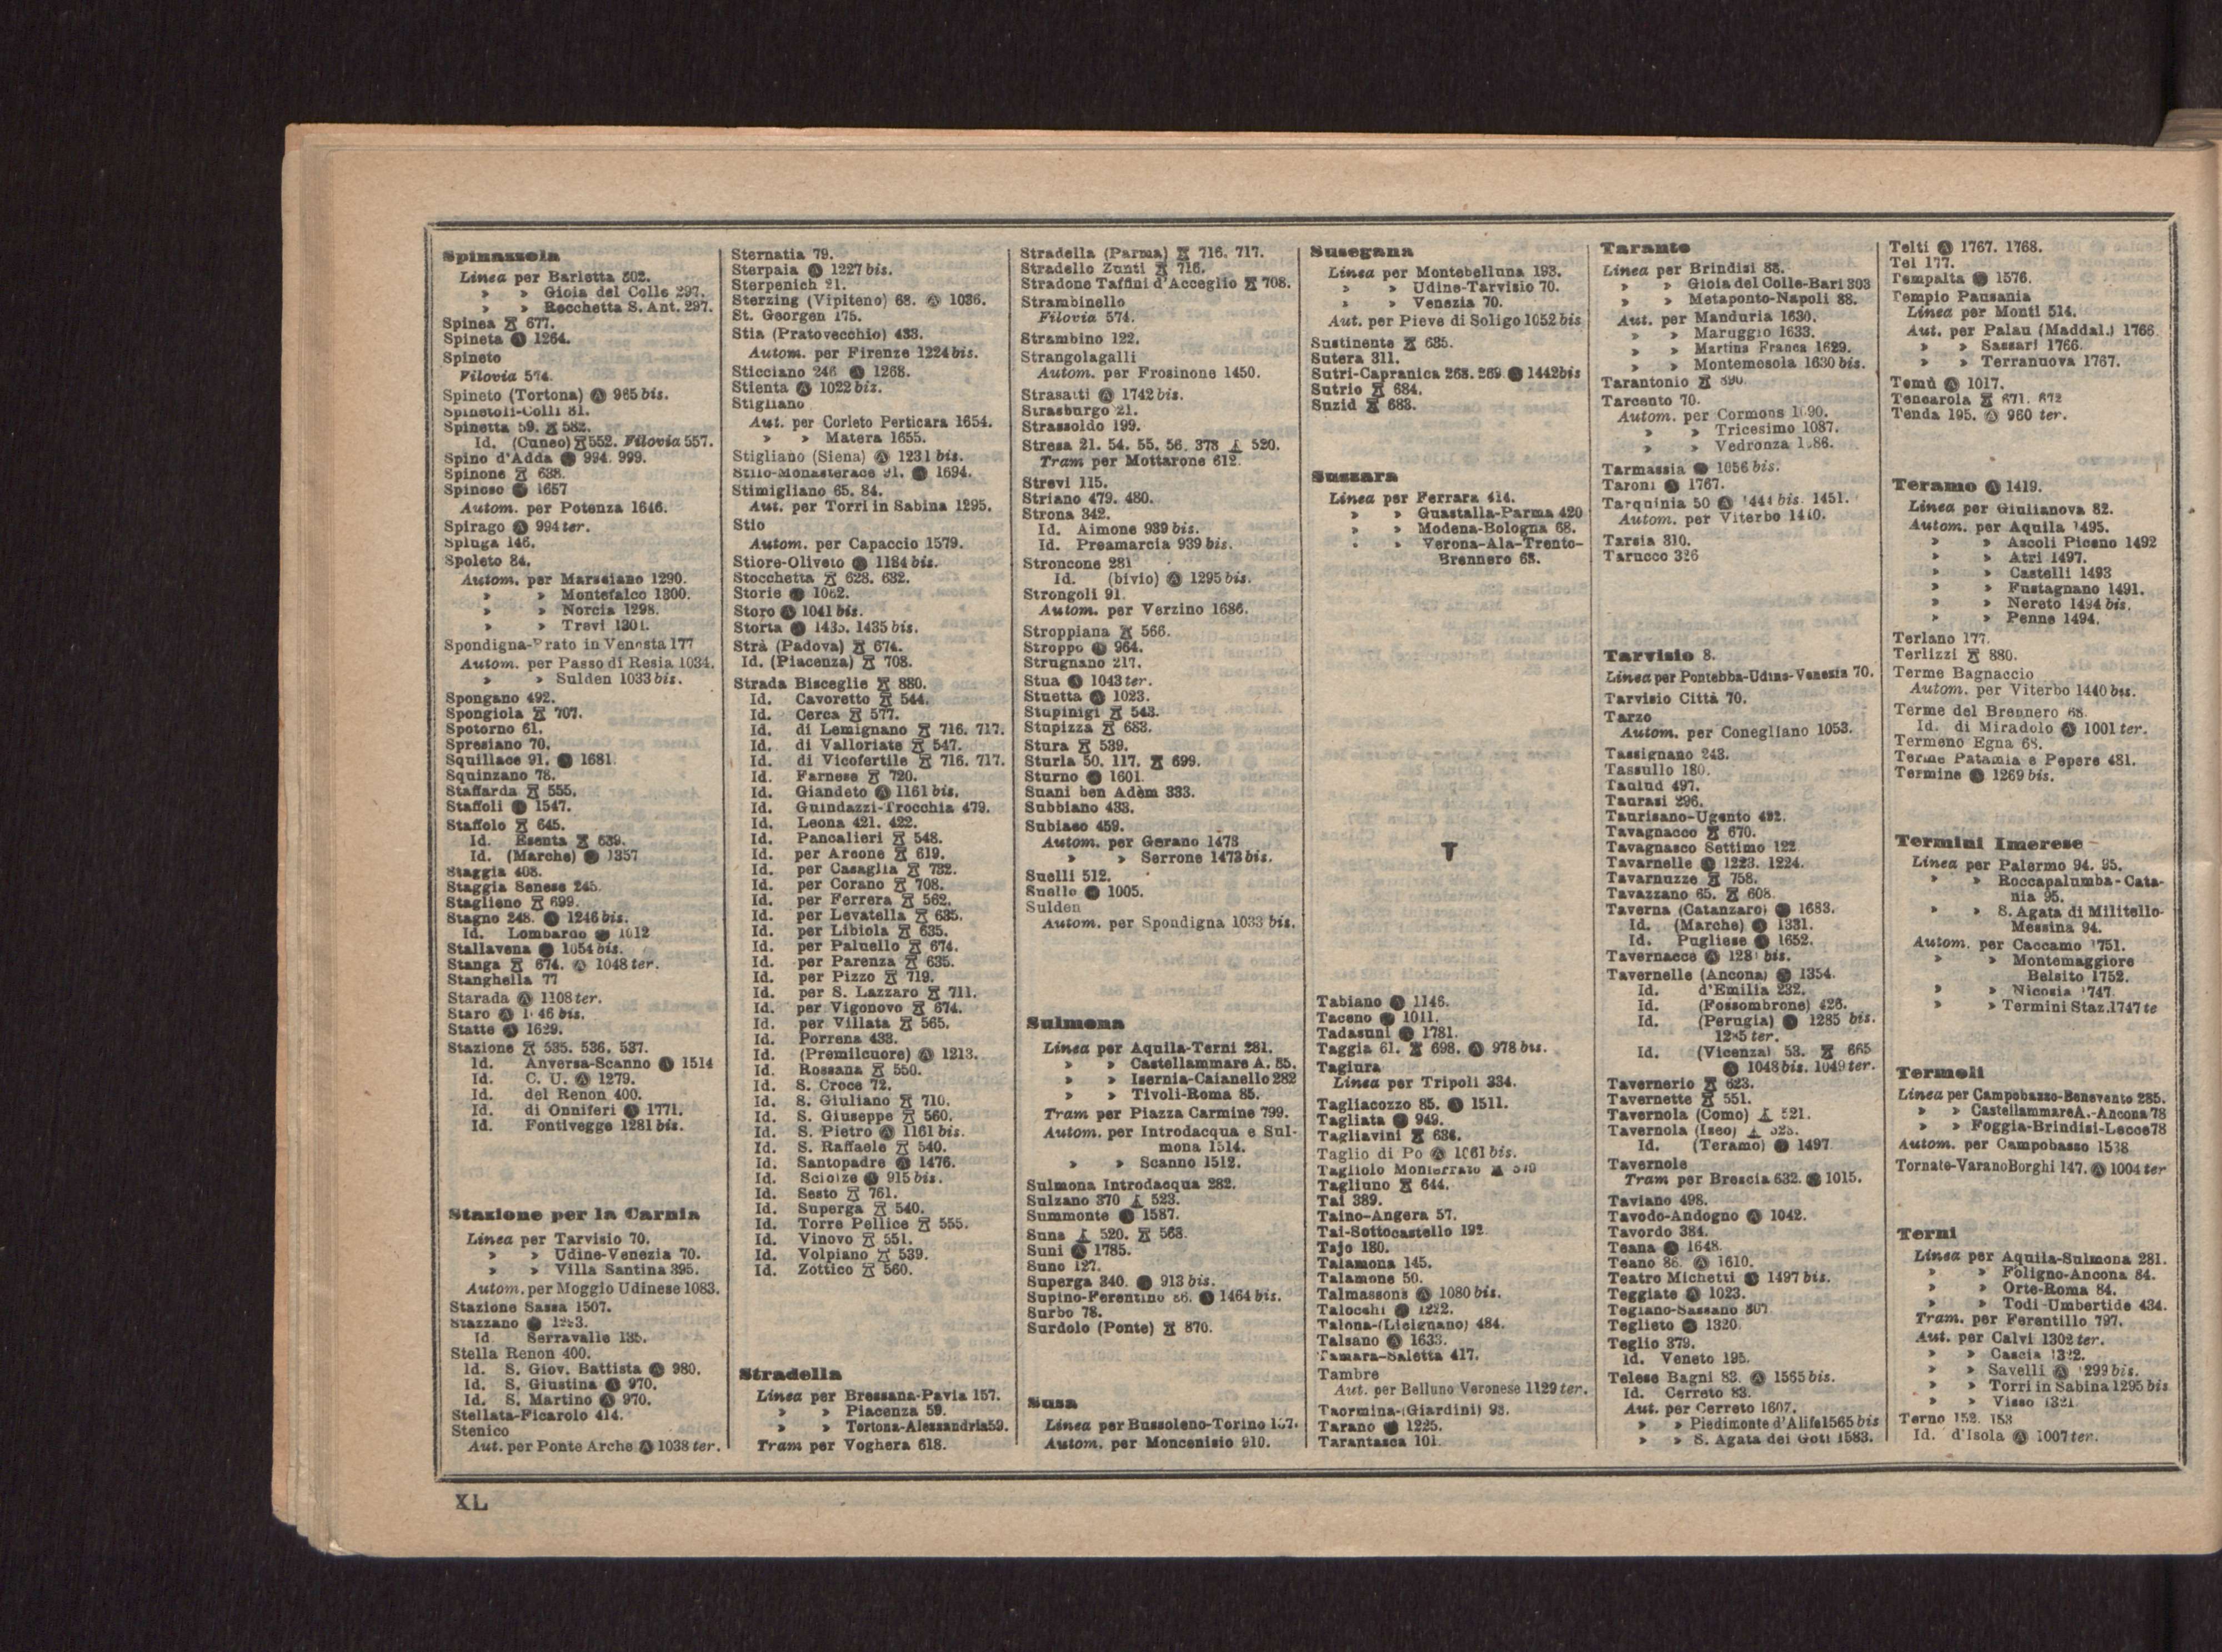 Spinazzola
Linea per Barletta 302.
» » Gioia del Colle 297.
» » Rocchetta S. Ant. 297.
Spinea 677.
Spineta Ⓐ 1264.
Spineto
Filovia 574.
Spineto (Tortona) Ⓐ 965 bis.
Spinetoli-Colli 81.
Spinetta 59. 582.
Id. (Cuneo) 552. Filovia 557.
Spino d'Adda Ⓐ 994. 999.
Spinone 638.
Spinoso Ⓐ 1657
Autom. per Potenza 1646.
Spirago Ⓐ 994 ter.
Spluga 146.
Spoleto 84.
Autom. per Marsciano 1290.
» » Montefalco 1300.
» » Norcia 1298.
» » Trevi 1301.
Spondigna-Prato in Venosta 177
Autom. per Passo di Resia 1034.
» » Sulden 1033 bis.
Spongano 492.
Spongiola 707.
Spotorno 61.
Spresiano 70.
Squillace 91. Ⓐ 1681.
Squinzano 78.
Staffarda 555.
Staffoli Ⓐ 1547.
Staffolo 645.
Id. Esenta 639.
Id. (Marche) Ⓐ 1357
Staggia 408.
Staggia Senese 245.
Staglieno 699.
Stagno 248. Ⓐ 1246 bis.
Id. Lombardo Ⓐ 1012
Stallavena Ⓐ 1054 bis.
Stanga 674. Ⓐ 1048 ter.
Stanghella 77
Starada Ⓐ 1108 ter.
Staro Ⓐ bis.
Statte Ⓐ 1629.
Stazione 535. 536. 537.
Id. Anversa-Scanno Ⓐ 1514
Id. C. U. Ⓐ 1279.
Id. del Renon 400.
Id. di Onniferi Ⓐ 1771.
Id. Fontivegge 1281 bis.
Stazione per la Carnia
Linea per Tarvisio 70.
» » Udine-Venezia 70.
» » Villa Santina 395.
Autom. per Moggio Udinese 1083.
Stazione Sassa 1507.
Stazzano Ⓐ
Id Serravalle 135.
Stella Renon 400.
Id. S. Giov. Battista Ⓐ 980.
Id. S. Giustina Ⓐ 970.
Id. S. Martino Ⓐ 970.
Stellata-Ficarolo 414.
Stenico
Aut. per Ponte Arche Ⓐ 1038 ter.
Sternatia 79.
Sterpaia Ⓐ 1227 bis.
Sterpenich 21.
Sterzing (Vipiteno) 68. Ⓐ 1036.
St. Georgen 175.
Stia (Pratovecchio) 433.
Autom. per Firenze 1224 bis.
Sticciano 246 Ⓐ 1268.
Stienta Ⓐ 1022 bis.
Stigliano
Aut. per Corleto Perticara 1654.
» » Matera 1655.
Stigliano (Siena) Ⓐ 1231 bis.
Stilo-Monasterace 91. Ⓐ 1694.
Stimigliano 65. 84.
Aut. per Torri in Sabina 1295.
Stio
Autom. per Capaccio 1579.
Stiore-Oliveto Ⓐ 1184 bis.
Stocchetta 628. 632.
Storie Ⓐ 1062.
Storo Ⓐ 1041 bis.
Storta Ⓐ 1435. 1435 bis.
Strà (Padova) 674.
Id. (Piacenza) 708.
Strada Bisceglie 880.
Id. Cavoretto 544.
Id. Cerca 577.
Id. di Lemignano 716. 717.
Id. di Valloriate 547.
Id. di Vicofertile 716. 717.
Id. Farnese 720.
Id. Giandeto Ⓐ 1161 bis.
Id. Guindazzi-Trocchia 479.
Id. Leona 421. 422.
Id. Pancalieri 548.
Id. per Arcone 619.
Id. per Casaglia 732.
Id. per Corano 708.
Id. per Ferrera 562.
Id. per Levatella 635.
Id. per Libiola 635.
Id. per Paluello 674.
Id. per Parenza 635.
Id. per Pizzo 719.
Id. per S. Lazzaro 711.
Id. per Vigonovo 674.
Id. per Villata 565.
Id. Porrena 433.
Id. (Premilcuore) Ⓐ 1213.
Id. Rossana 550.
Id. S. Croce 72.
Id. S. Giuliano 710.
Id. S. Giuseppe 560.
Id. S. Pietro Ⓐ 1161 bis.
Id. S. Raffaele 540.
Id. Santopadre Ⓐ 1476.
Id. Sciolze Ⓐ 915 bis.
Id. Sesto 761.
Id. Superga 540.
Id. Torre Pellice 555.
Id. Vinovo 551.
Id. Volpiano 539.
Id. Zottico 560.
Stradella
Linea per Bressana-Pavia 157.
» » Piacenza 59.
» » Tortona-Alessandria 59.
Tram per Voghera 618.
Stradella (Parma) 716. 717.
Stradello Zunti 716.
Stradone Taffini d'Acceglio 708.
Strambinello
Filovia 574.
Strambino 122.
Strangolagalli
Autom. per Frosinone 1450.
Strasatti Ⓐ 1742 bis.
Strasburgo 21.
Strassoldo 199.
Stresa 21. 54. 55. 56. 378 520.
Tram per Mottarone 612.
Strevi 115.
Striano 479. 480.
Strona 342.
Id. Aimone 939 bis.
Id. Preamarcia 939 bis.
Stroncone 281
Id. (bivio) Ⓐ 1295 bis.
Strongoli 91.
Autom. per Verzino 1686.
Stroppiana 566.
Stroppo Ⓐ 964.
Strugnano 217.
Stua Ⓐ 1043 ter.
Stuetta Ⓐ 1023.
Stupinigi 543.
Stupizza 683.
Stura 539.
Sturla 50. 117. 699.
Sturno Ⓐ 1601.
Suani ben Adèm 333.
Subbiano 433.
Subiaco 459.
Autom. per Gerano 1473
» » Serrone 1473 bis.
Suelli 512.
Suello Ⓐ 1005.
Sulden
Autom. per Spondigna 1033 bis.
Sulmona
Linea per Aquila-Terni 281.
» » Castellammare A. 85.
» » Isernia-Caianello 282
» » Tivoli-Roma 85.
Tram per Piazza Carmine 799.
Autom. per Introdacqua e Sul-
mona 1514.
» » Scanno 1512.
Sulmona Introdacqua 282.
Sulzano 370 523.
Summonte Ⓐ 1587.
Suna 520. 568.
Suni Ⓐ 1785.
Suno 127.
Superga 340. Ⓐ 913 bis.
Supino-Ferentino 86. Ⓐ 1464 bis.
Surbo 78.
Surdolo (Ponte) 870.
Susa
Linea per Bussoleno-Torino
Autom. per Moncenisio 910.
Susegana
Linea per Montebelluna 193.
» » Udine-Tarvisio 70.
» » Venezia 70.
Aut. per Pieve di Soligo 1052 bis
Sustinente 635.
Sutera 311.
Sutri-Capranica 268. 269 Ⓐ 1442 bis
Sutrio 684.
Suzid 683.
Suzzara
Linea per Ferrara 414.
» » Guastalla-Parma 420
» » Modena-Bologna 68.
» » Verona-Ala-Trento-
Brennero 68.
T
Tabiano Ⓐ 1146.
Taceno Ⓐ 1011.
Tadasuni Ⓐ 1781.
Taggia 61. 698. Ⓐ 978 bis.
Tagiura
Linea per Tripoli 334.
Tagliacozzo 85. Ⓐ 1511.
Tagliata Ⓐ 949.
Tagliavini 634.
Taglio di Po Ⓐ 1061 bis.
Tagliolo Monferrato
Tagliuno 644.
Tai 389.
Taino-Angera 57.
Tai-Sottocastello 192.
Tajo 180.
Talamona 145.
Talamone 50.
Talmassons Ⓐ 1080 bis.
Talocchi Ⓐ 1222.
Talona-(Licignano) 484.
Talsano Ⓐ 1633.
Tamara-Saletta 417.
Tambre
Aut. per Belluno Veronese 1129 ter.
Taormina-(Giardini) 93.
Tarano Ⓐ 1225.
Tarantasca 101.
Taranto
Linea per Brindisi 88.
» » Gioia del Colle-Bari 303
» » Metaponto-Napoli 88.
Aut. per Manduria 1630.
» » Maruggio 1633.
» » Martina Franca 1629.
» » Montemesola 1630 bis.
Tarantonio 890.
Tarcento 70.
Autom. per Cormons 1090.
» » Tricesimo 1087.
» » Vedronza 1086.
Tarmassia Ⓐ 1056 bis.
Taroni Ⓐ 1767.
Tarquinia 50 Ⓐ 1444 bis. 1451.
Autom. per Viterbo 1440.
Tarsia 310.
Tarucco 326
Tarvisio 8.
Linea per Pontebba-Udine-Venezia 70.
Tarvisio Città 70.
Tarzo
Autom. per Conegliano 1053.
Tassignano 243.
Tassullo 180.
Taulud 497.
Taurasi 296.
Taurisano-Ugento 492.
Tavagnacco 670.
Tavagnasco Settimo 122
Tavarnelle Ⓐ 1223. 1224.
Tavarnuzze 758.
Tavazzano 65. 608.
Taverna (Catanzaro) Ⓐ 1683.
Id. (Marche) Ⓐ 1331.
Id. Pugliese Ⓐ 1652.
Tavernacce Ⓐ 1281 bis.
Tavernelle (Ancona) Ⓐ 1354.
Id. d'Emilia 232.
Id. (Fossombrone) 426.
Id. (Perugia) Ⓐ 1285 bis.
1285 ter.
Id. (Vicenza) 53. 665
Ⓐ 1048 bis. 1049 ter.
Tavernerio 623.
Tavernette 551.
Tavernola (Como) 521.
Tavernola (Iseo) 523.
Id. (Teramo) Ⓐ 1497
Tavernole
Tram per Brescia 632. Ⓐ 1015.
Taviano 498.
Tavodo-Andogno Ⓐ 1042.
Tavordo 384.
Teana Ⓐ 1648.
Teano 86. Ⓐ 1610.
Teatro Michetti Ⓐ 1497 bis.
Teggiate Ⓐ 1023.
Tegiano-Sassano 307
Teglieto Ⓐ 1320
Teglio 379.
Id. Veneto 195.
Telese Bagni 83. Ⓐ 1565 bis.
Id. Cerreto 83.
Aut. per Cerreto 1607.
» » Piedimonte d'Alife 1565 bis
» » S. Agata dei Goti 1583.
Telti Ⓐ 1767. 1768.
Tel 177.
Tempalta Ⓐ 1576.
Tempio Pausania
Linea per Monti 514.
Aut. per Palau (Maddal.) 1766
» » Sassari 1766.
» » Terranuova 1767.
Temù Ⓐ 1017.
Tencarola 671. 672
Tenda 195. Ⓐ 960 ter.
Teramo Ⓐ 1419.
Linea per Giulianova 82.
Autom. per Aquila 1495.
» » Ascoli Piceno 1492
» » Atri 1497.
» » Castelli 1493
» » Fustagnano 1491.
» » Nereto 1494 bis.
» » Penne 1494.
Terlano 177.
Terlizzi 880.
Terme Bagnaccio
Autom. per Viterbo 1440 bis.
Terme del Brennero 68.
Id. di Miradolo Ⓐ 1001 ter.
Termeno Egna 68.
Terme Patamia e Pepere 481.
Termine Ⓐ 1269 bis.
Termini Imerese
Linea per Palermo 94. 95.
» » Roccapalumba-Cata-
nia 95.
» » S. Agata di Militello-
Messina 94.
Autom. per Caccamo 1751.
» » Montemaggiore
Belsito 1752.
» » Nicosia 1747.
» » Termini Staz. 1747 te
Termoli
Linea per Campobasso-Benevento 285.
» » Castellammare A.-Ancona 78
» » Foggia-Brindisi-Lecce 78
Autom. per Campobasso 1538
Tornate-Varano Borghi 147. Ⓐ 1004 ter
Terni
Linea per Aquila-Sulmona 281.
» » Foligno-Ancona 84.
» » Orte-Roma 84.
» » Todi-Umbertide 434.
Tram. per Ferentillo 797.
Aut. per Calvi 1302 ter.
» » Cascia 1322.
» » Savelli Ⓐ 1299 bis.
» » Torri in Sabina 1295 bis
» » Visso 1321.
Terno 152. 153
Id. d'Isola Ⓐ 1007 ter.
XL